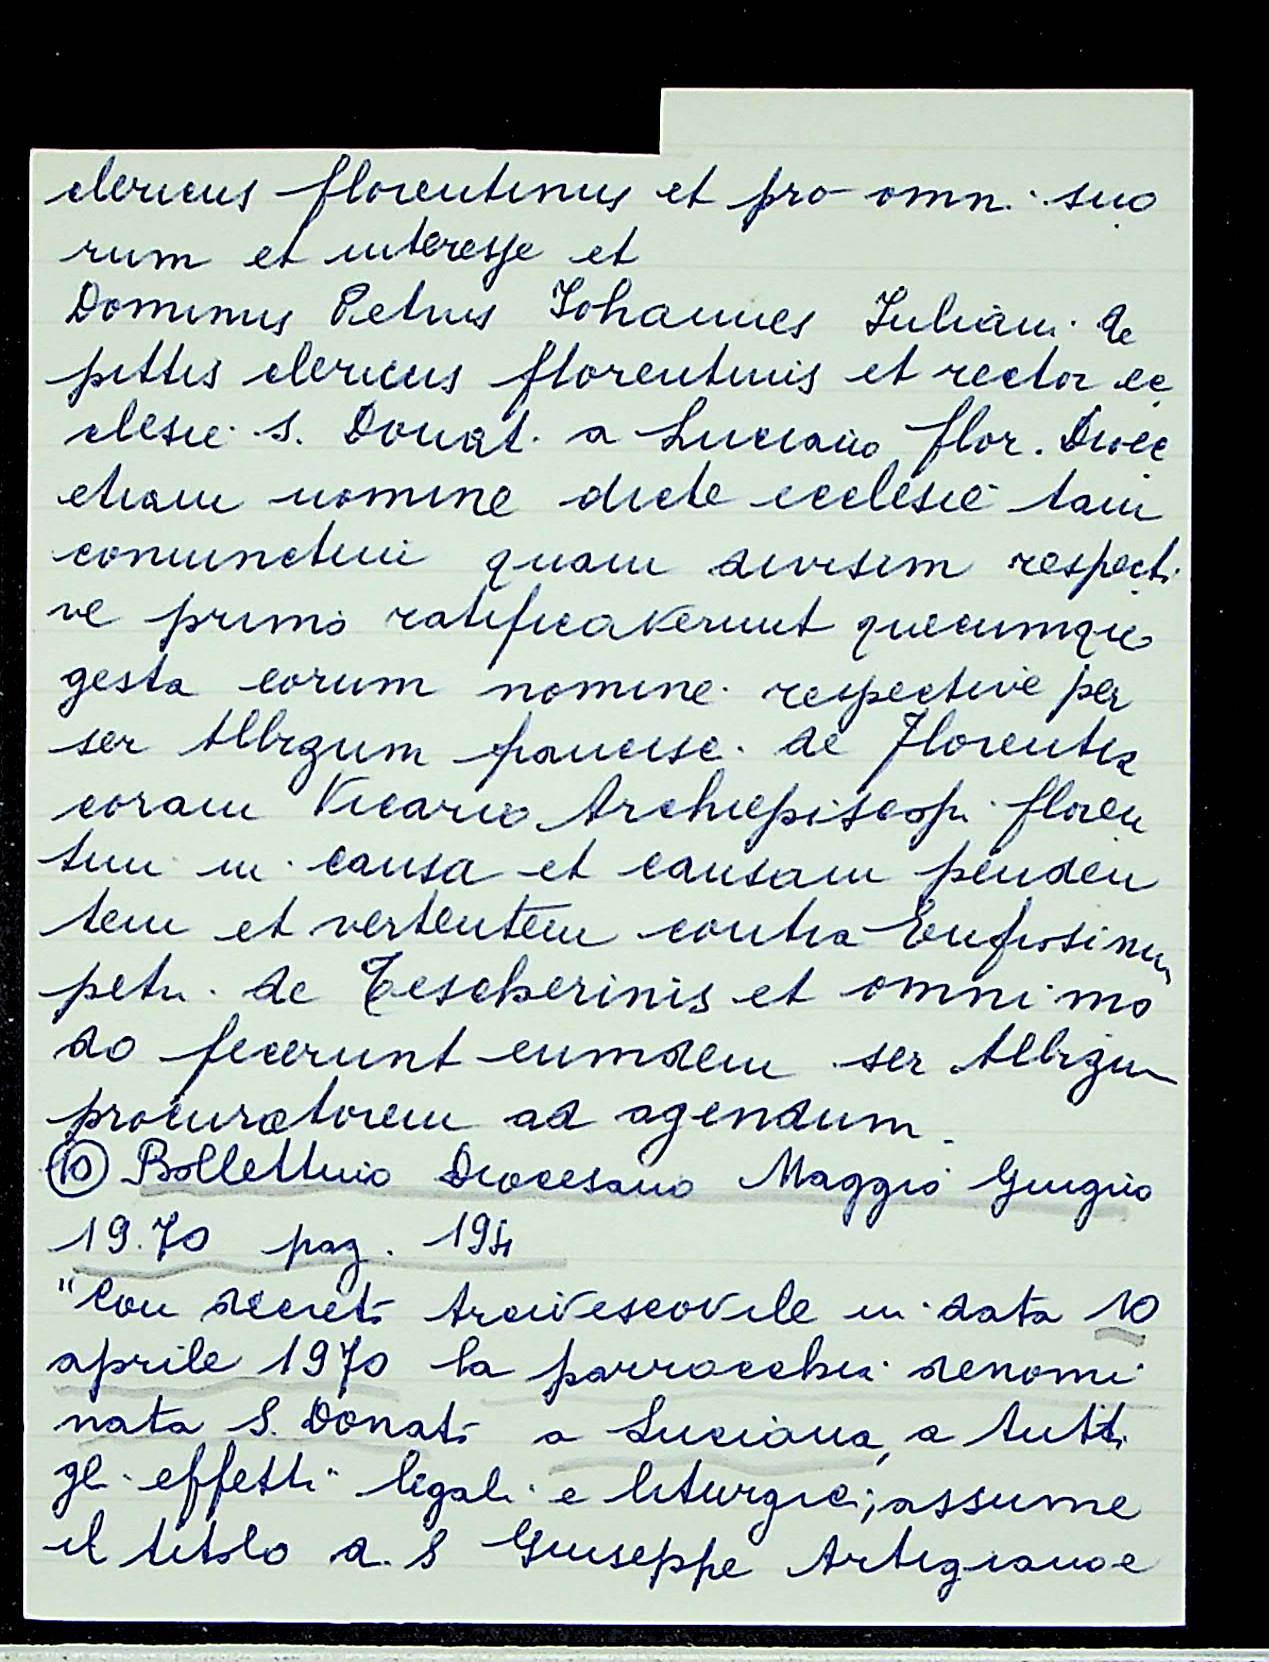 clericus florentinus et pro omn. suo
rum et interesse et
Dominus Petrus Iohannes Iuliani de
pittis clericus florentinis et rector ec
clesie S. Donat. a Luciano flor. Dioec
etiam nomine dicte ecclesie tam
coniunctim quam divisim respecti
ve primo ratificaverunt quecumque
gesta eorum nomine respective per
ser Albizum francisc. de Florentia
coram Vicario Archiepiscopi floren
tini in causa et causam penden
tem et vertentem contra Eufrosinum
petri de Tescherinis et omni mo
do fecerunt eumdem ser Albizum
procuratorem ad agendum.
(10) Bollettino Diocesano Maggio Giugno
19.70 pag.
"Con decreto Arcivescovile in data 10
aprile 1970 la parrocchia denomi
nata S. Donato a Luciana, a tutti
gli effetti legali e liturgici, assume
il titolo d. S Giuseppe Artigiano e